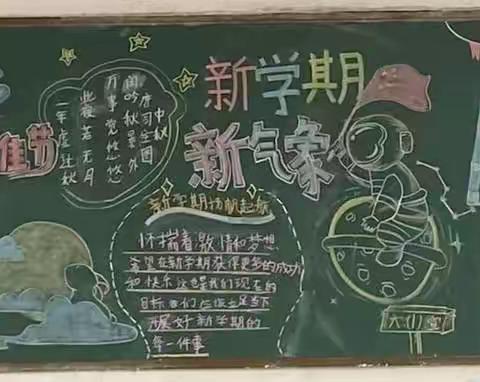 佳节
中秋
唐司空图
闲吟秋景外
万事觉悠悠
此夜若无月
一年虚过秋
新学期
新气象
新学期扬帆起航
怀揣着激情和梦想
希望在新学期获得更多的成功
和快乐这是我们现在的
目标我们应该立足当下
把握好新学期的
每一件事
六(1)